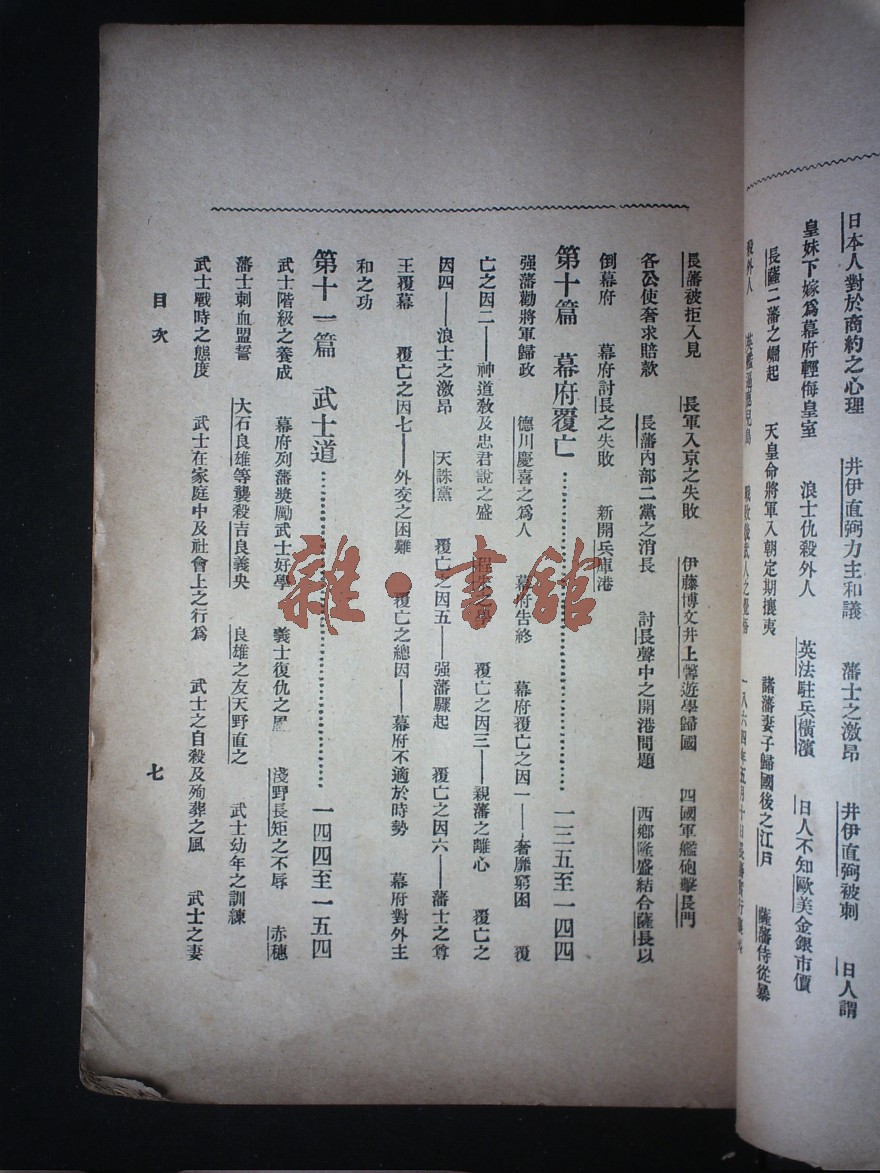 日本人對於商約之心理　井伊直弼力主和議　藩士之激昂　井伊直弼被刺　日人謂
皇妹下嫁爲幕府輕侮皇室　浪士仇殺外人　英法駐兵橫濱　日人不知歐美金銀市價
長薩二藩之崛起　天皇命將軍入朝定期攘夷　諸藩妻子歸國後之江戶　薩藩侍從暴
殺外人　一八六四年五月十日長藩實行
長藩被拒入見　長軍入京之失敗　伊藤博文井上馨遊學歸國　四國軍艦砲擊長門
各公使奢求賠款　長藩內部二黨之消長　討長聲中之開港問題　西鄉隆盛結合薩長以
倒幕府　幕府討長之失敗　新開兵庫港
第十篇　幕府覆亡……………………一三五至一四四
强藩勸將軍歸政　德川慶喜之爲人　幕府告終　幕府覆亡之因一——奢靡窮困　覆
亡之因二——神道敎及忠君說之盛　程朱之學　覆亡之因三——親藩之離心　覆亡之
因四——浪士之激昂　天誅黨　覆亡之因五——强藩驟起　覆亡之因六——藩士之尊
王覆幕　覆亡之因七——外交之困難　覆亡之總因——幕府不適於時勢　幕府對外主
和之功
第十一篇　武士道……………………一四四至一五四
武士階級之養成　幕府列藩獎勵武士好學　義士復仇之風　淺野長矩之不辱　赤穗
藩士刺血盟誓　大石良雄等襲殺吉良義央　良雄之友天野直之　武士幼年之訓練
武士戰時之態度　武士在家庭中及社會上之行爲　武士之自殺及殉葬之風　武士之妻
目次
七
雜・書館